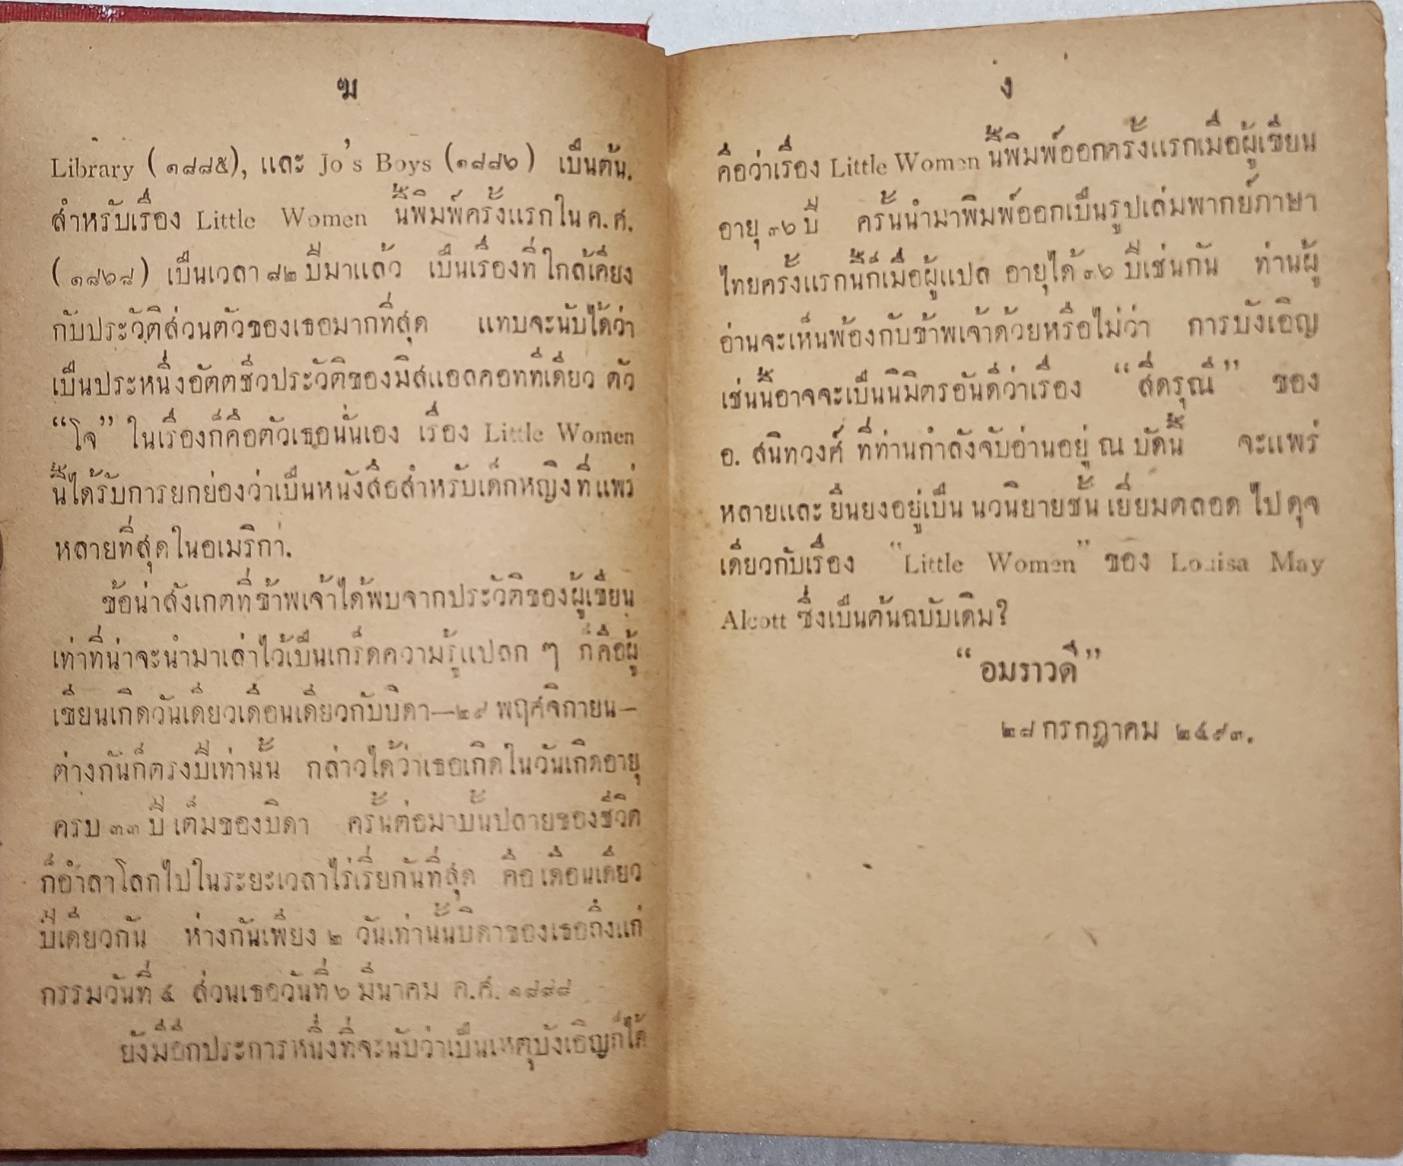 ฆ
Library (๑๘๘๕), และ Jo's Boys (๑๘๘๖) เป็นต้น.
สำหรับเรื่อง Little Women นี้พิมพ์ครั้งแรกใน ค.ศ.
(๑๘๖๘) เป็นเวลา ๘๒ ปีมาแล้ว เป็นเรื่องที่ใกล้เคียง
กับประวัติส่วนตัวของเธอมากที่สุด แทบจะนับได้ว่า
เป็นประหนึ่งอัตตชีวประวัติของมิสแอลคอททีเดียว ตัว
“โจ” ในเรื่องก็คือตัวเธอนั่นเอง เรื่อง Little Women
นี้ได้รับการยกย่องว่าเป็นหนังสือสำหรับเด็กหญิงที่แพร่
หลายที่สุดในอเมริกา.
ข้อน่าสังเกตที่ข้าพเจ้าได้พบจากประวัติของผู้เขียน
เท่าที่น่าจะนำมาเล่าไว้เป็นเกร็ดความรู้แปลก ๆ ก็คือผู้
เขียนเกิดวันเดียวเดือนเดียวกับบิดา—๒๙ พฤศจิกายน—
ต่างกันก็ตรงปีเท่านั้น กล่าวได้ว่าเธอเกิดในวันเกิดอายุ
ครบ ๓๓ ปี เต็มของบิดา ครั้นต่อมาบั้นปลายของชีวิต
ก็อำลาโลกไปในระยะเวลาไร่เรี่ยกันที่สุด คือ เดือนเดียว
ปีเดียวกัน ห่างกันเพียง ๒ วันเท่านั้นบิดาของเธอถึงแก่
กรรมวันที่ ๔ ส่วนเธอวันที่ ๖ มีนาคม ค.ศ. ๑๘๘๘
ยังมีอีกประการหนึ่งที่จะนับว่าเป็นเหตุบังเอิญก็ได้
ง
คือว่าเรื่อง Little Women นี้พิมพ์ออกครั้งแรกเมื่อผู้เขียน
อายุ ๓๖ ปี ครั้นนำมาพิมพ์ออกเป็นรูปเล่มพากย์ภาษา
ไทยครั้งแรกนี้ก็เมื่อผู้แปล อายุได้ ๓๖ ปีเช่นกัน ท่านผู้
อ่านจะเห็นพ้องกับข้าพเจ้าด้วยหรือไม่ว่า การบังเอิญ
เช่นนี้อาจจะเป็นนิมิตรอันดีว่าเรื่อง “สี่ดรุณี” ของ
อ. สนิทวงศ์ ที่ท่านกำลังจับอ่านอยู่ ณ บัดนี้ จะแพร่
หลายและ ยืนยงอยู่เป็น นวนิยายชั้น เยี่ยมตลอด ไป ดุจ
เดียวกับเรื่อง “Little Women” ของ Louisa May
Alcott ซึ่งเป็นต้นฉบับเดิม?
“อมราวดี”
๒๘ กรกฎาคม ๒๔๙๓.